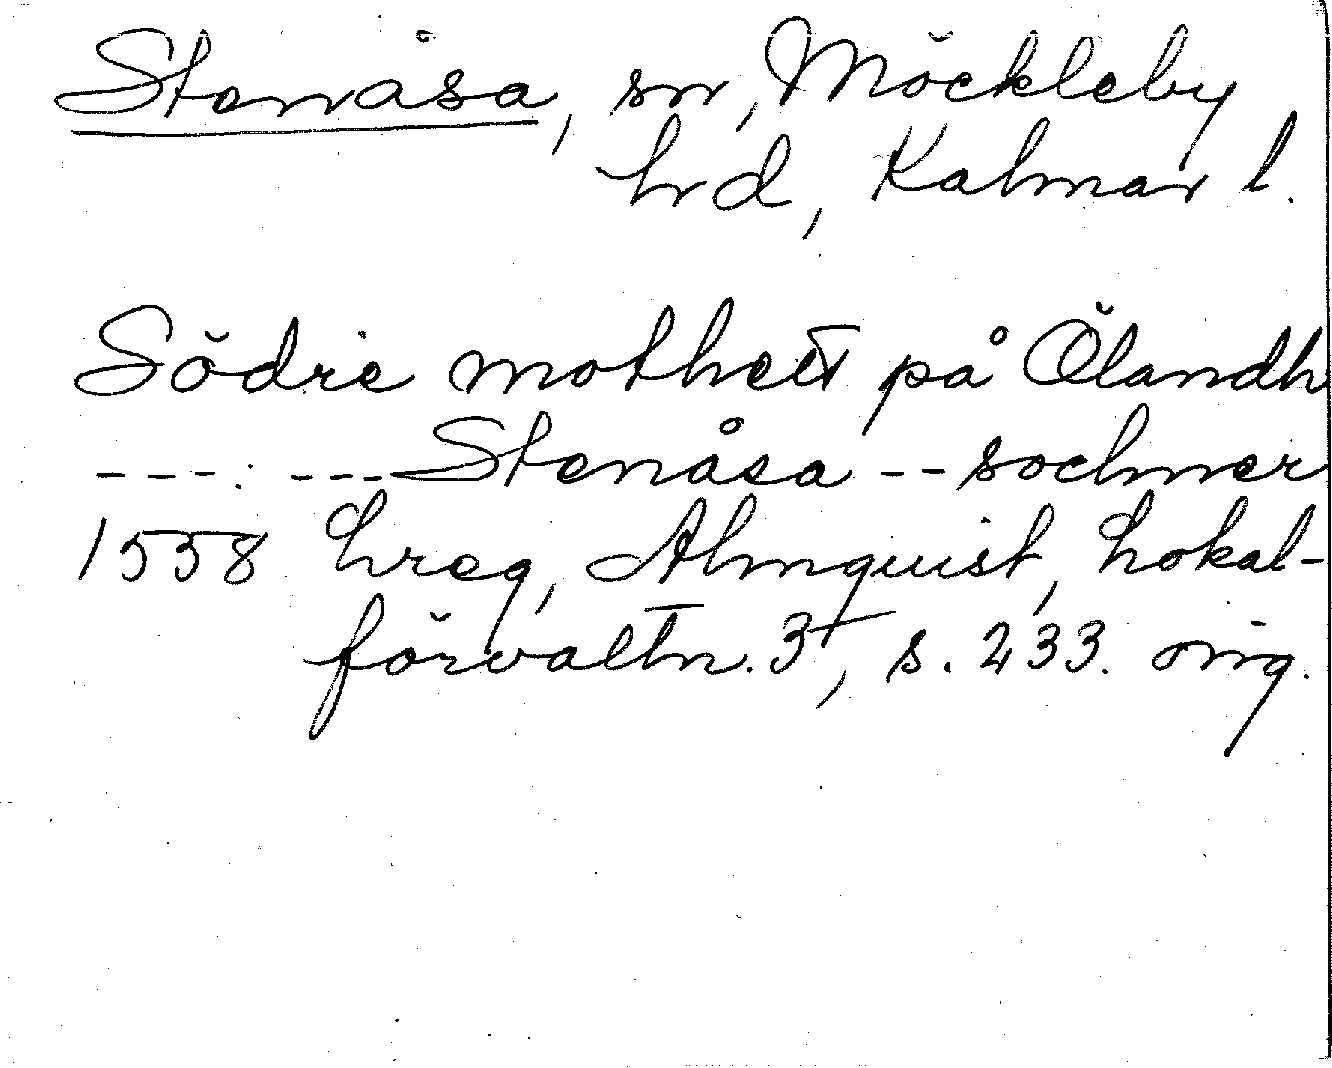 Stenåsa, sn, Möckleby
hd, Kalmar l.
Södre mothett på Ölandh
---:---Stenåsa--sochner
1558 hreg, Almquist, Lokal-
förvaltn. 3, s. 233. orig.